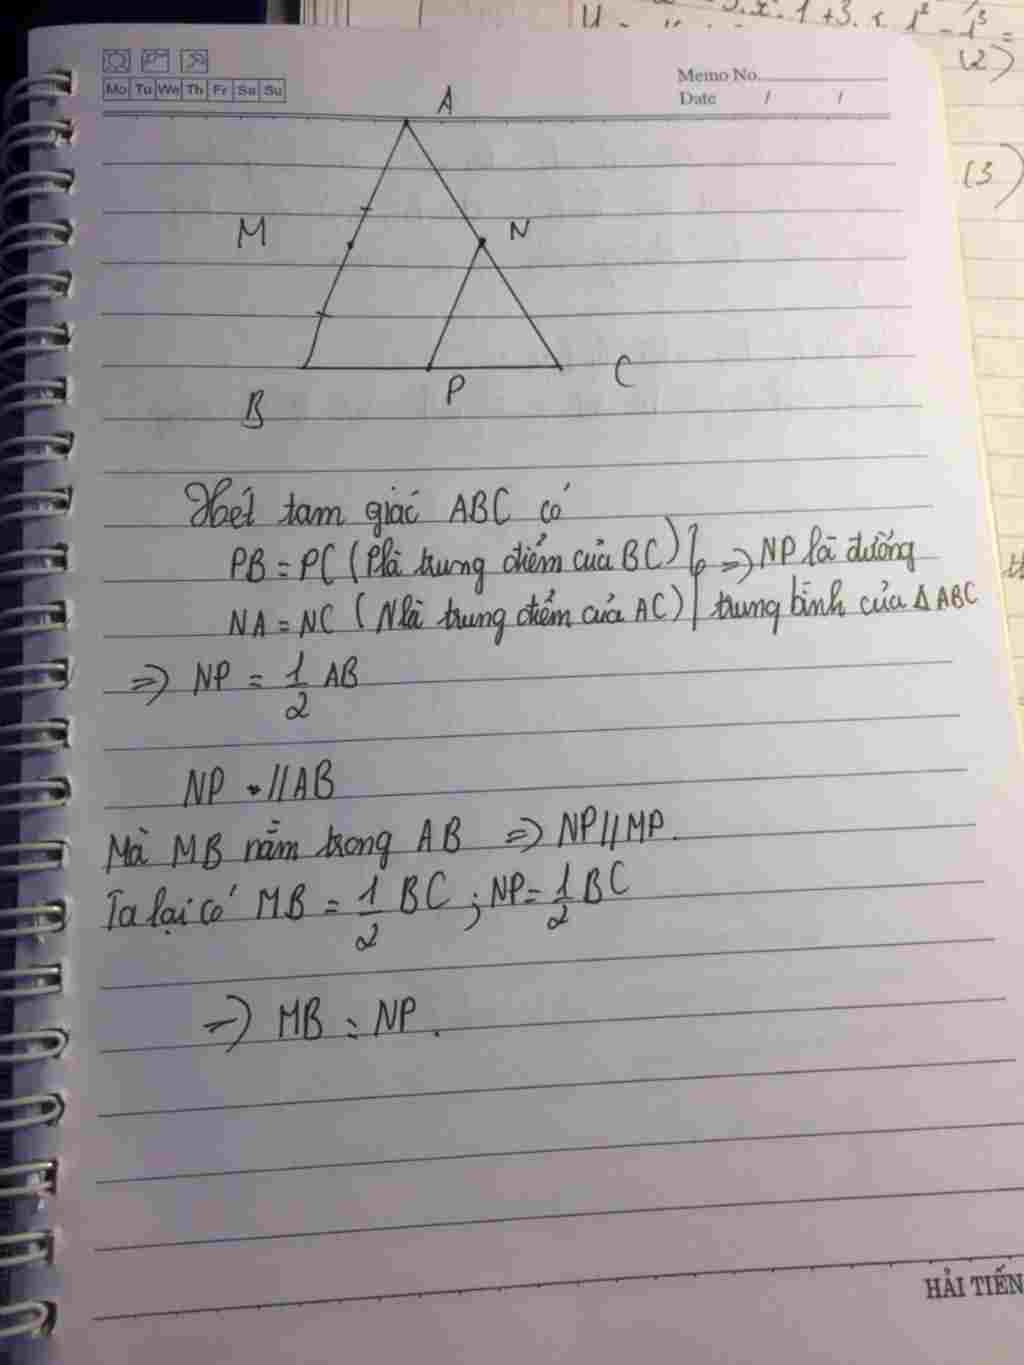 - 3.x².1 + 3.x 1² - 1³ =
(2)
Mo Tu We Th Fr Sa Su
Memo No.
Date / /
A
(3)
M
N
B
P
C
Xét tam giác ABC có
PB = PC (P là trung điểm của BC) } => NP là đường
NA = NC (N là trung điểm của AC) | trung bình của Δ ABC
=> NP = 1/2 AB
NP // AB
Mà MB nằm trong AB => NP // MP.
Ta lại có MB = 1/2 BC ; NP = 1/2 BC
=> MB = NP.
HẢI TIẾN